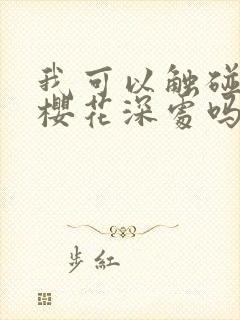 我可以触碰
樱花深处吗
步红